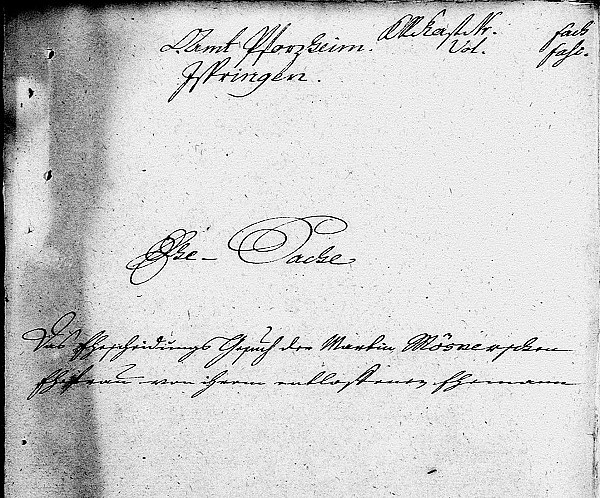 OAmt Pforzheim. Akt. Kast. Nr. Fach
Ispringen. Vol. Fasc.
Ehe-Sache
Das Ehescheidungs Gesuch der Martin Mösnerschen
Ehefrau von ihrem entlossenen Ehemann